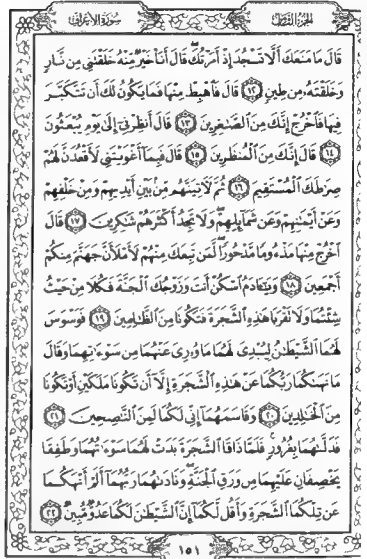 الجزء الثامن
سورة الأعراف
قَالَ مَا مَنَعَكَ أَلَّا تَسْجُدَ إِذْ أَمَرْتُكَ ۖ قَالَ أَنَا۠ خَيْرٌ مِّنْهُ خَلَقْتَنِى مِن نَّارٍ
وَخَلَقْتَهُۥ مِن طِينٍ ١٢ قَالَ فَٱهْبِطْ مِنْهَا فَمَا يَكُونُ لَكَ أَن تَتَكَبَّرَ
فِيهَا فَٱخْرُجْ إِنَّكَ مِنَ ٱلصَّـٰغِرِينَ ١٣ قَالَ أَنظِرْنِىٓ إِلَىٰ يَوْمِ يُبْعَثُونَ
١٤ قَالَ إِنَّكَ مِنَ ٱلْمُنظَرِينَ ١٥ قَالَ فَبِمَآ أَغْوَيْتَنِى لَأَقْعُدَنَّ لَهُمْ
صِرَٰطَكَ ٱلْمُسْتَقِيمَ ١٦ ثُمَّ لَـَٔاتِيَنَّهُم مِّنۢ بَيْنِ أَيْدِيهِمْ وَمِنْ خَلْفِهِمْ
وَعَنْ أَيْمَـٰنِهِمْ وَعَن شَمَآئِلِهِمْ ۖ وَلَا تَجِدُ أَكْثَرَهُمْ شَـٰكِرِينَ ١٧ قَالَ
ٱخْرُجْ مِنْهَا مَذْءُومًا مَّدْحُورًا ۖ لَّمَن تَبِعَكَ مِنْهُمْ لَأَمْلَأَنَّ جَهَنَّمَ مِنكُمْ
أَجْمَعِينَ ١٨ وَيَـٰٓـَٔادَمُ ٱسْكُنْ أَنتَ وَزَوْجُكَ ٱلْجَنَّةَ فَكُلَا مِنْ حَيْثُ
شِئْتُمَا وَلَا تَقْرَبَا هَـٰذِهِ ٱلشَّجَرَةَ فَتَكُونَا مِنَ ٱلظَّـٰلِمِينَ ١٩ فَوَسْوَسَ
لَهُمَا ٱلشَّيْطَـٰنُ لِيُبْدِىَ لَهُمَا مَا وُۥرِىَ عَنْهُمَا مِن سَوْءَٰتِهِمَا وَقَالَ
مَا نَهَىٰكُمَا رَبُّكُمَا عَنْ هَـٰذِهِ ٱلشَّجَرَةِ إِلَّآ أَن تَكُونَا مَلَكَيْنِ أَوْ تَكُونَا
مِنَ ٱلْخَـٰلِدِينَ ٢٠ وَقَاسَمَهُمَآ إِنِّى لَكُمَا لَمِنَ ٱلنَّـٰصِحِينَ ٢١
فَدَلَّىٰهُمَا بِغُرُورٍ ۚ فَلَمَّا ذَاقَا ٱلشَّجَرَةَ بَدَتْ لَهُمَا سَوْءَٰتُهُمَا وَطَفِقَا
يَخْصِفَانِ عَلَيْهِمَا مِن وَرَقِ ٱلْجَنَّةِ ۖ وَنَادَىٰهُمَا رَبُّهُمَآ أَلَمْ أَنْهَكُمَا
عَن تِلْكُمَا ٱلشَّجَرَةِ وَأَقُل لَّكُمَآ إِنَّ ٱلشَّيْطَـٰنَ لَكُمَا عَدُوٌّ مُّبِينٌ ٢٢
١٥١